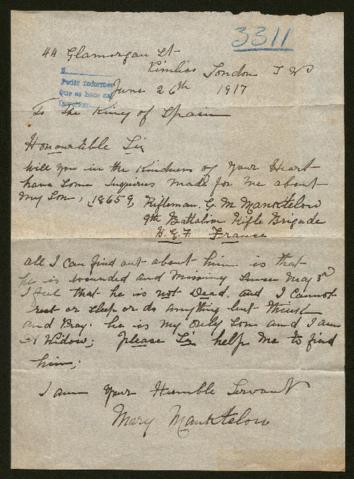 3311
44 Glamorgan St
Pimlico London S W
Pedir informes
que se hace
June 26th 1917
To The King of Spain
Honourable Sir
Will you in the Kindness of Your Heart
have some inquiries made for me about
my Son, 18659, Rifleman G M Manktelow
9th Battalion Rifle Brigade
B.E.F. France
all I can find out about him is that
he is wounded and missing Since May 3rd
I feel that he is not Dead. and I cannot
rest or sleep or do anything but think
and Pray. he is my Only Son and I am
a Widow; please Sir help me to find
him;
I am Your Humble Servant
Mary Manktelow